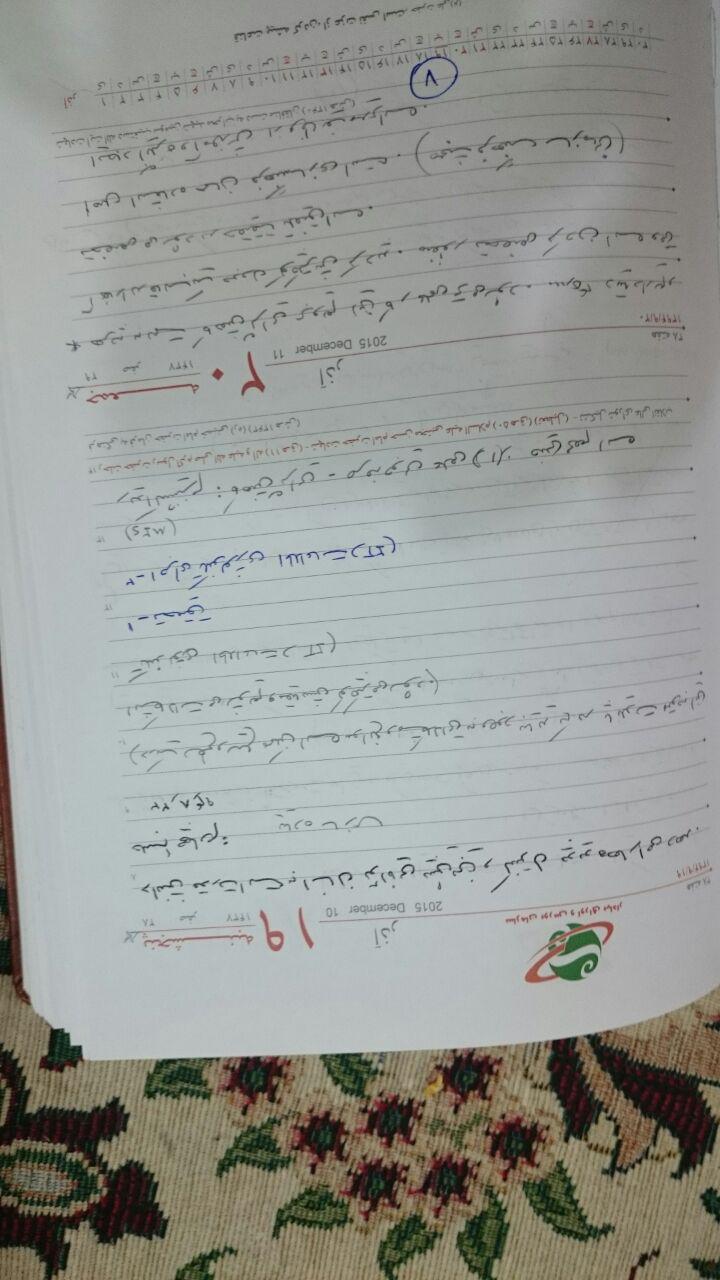 سازمان بورس و اوراق بهادار
پنجشنبه ۱۹ آذر
۲۸ صفر ۱۴۳۷
2015 December 10
هفته ۳۸
۱۳۹۴/۹/۱۹
دانش قدرت است به انسان توانایی پیش‌بینی و کنترل پدیده‌ها را می دهد.
۸
جلسهٔ چهارم: پیاده سازی
۹
۹۴٫۸٫۲۲
(در یک سطح وسیع ممکن است موانع و مشکلاتی به وجود بیاید که در پایلوت متوجه این
۱۰
اشکالات می شویم و مقیاسش کوچکتر می شود.)
۱۱
تکنولوژی اطلاعات (IT)
۱- تحقیق
۱۲
۲- اجرای تکنولوژی اطلاعات (IT)
۱۳
(MIS)
ریداکشنیزم: کاهش گرایی - صرفه جویی علمی خیلی مهم است
۱۴ رحلت حضرت رسول اکرم صلی الله علیه و آله (۱۱ ه.ق) - شهادت حضرت امام حسن مجتبی علیه السلام (۵۰ ه.ق) (تعطیل) - تشکیل شورای عالی انقلاب
فرهنگی به فرمان حضرت امام خمینی (ره) (۱۳۶۳ ه.ش)
جمعه ۲۰ آذر
۲۹ صفر ۱۴۳۷
2015 December 11
هفته ۳۸
۱۳۹۴/۹/۲۰
* هرچه به سمت کاهش گرایی برویم این کار علمی تر می شود. دیتا داریم و
آنها را در قالب یک جدول کوچکترش کردید. منظور تخصصی کردن است وقتی
تخصصی می شود در حقیقت تلفیق است.
اصل استفاده همان فرهنگسازی است. (مبحث فرهنگ سازمانی)
ایجاد انگیزه و آموزش از وظایف مدیر است.
شهادت آیت الله دستغیب سومین شهید محراب به دست منافقان (۱۳۶۰ ه.ش)
۷
آذر ۱ ۲ ۳ ۴ ۵ ۶ ۷ ۸ ۹ ۱۰ ۱۱ ۱۲ ۱۳ ۱۴ ۱۵ ۱۶ ۱۷ ۱۸ ۱۹ ۲۰ ۲۱ ۲۲ ۲۳ ۲۴ ۲۵ ۲۶ ۲۷ ۲۸ ۲۹ ۳۰
ی د س چ پ ج ش ی د س چ پ ج ش ی د س چ پ ج ش ی د س چ پ ج ش ی د
قناعت پیشه کردن، از عزت نفس است. حضرت علی (ع)